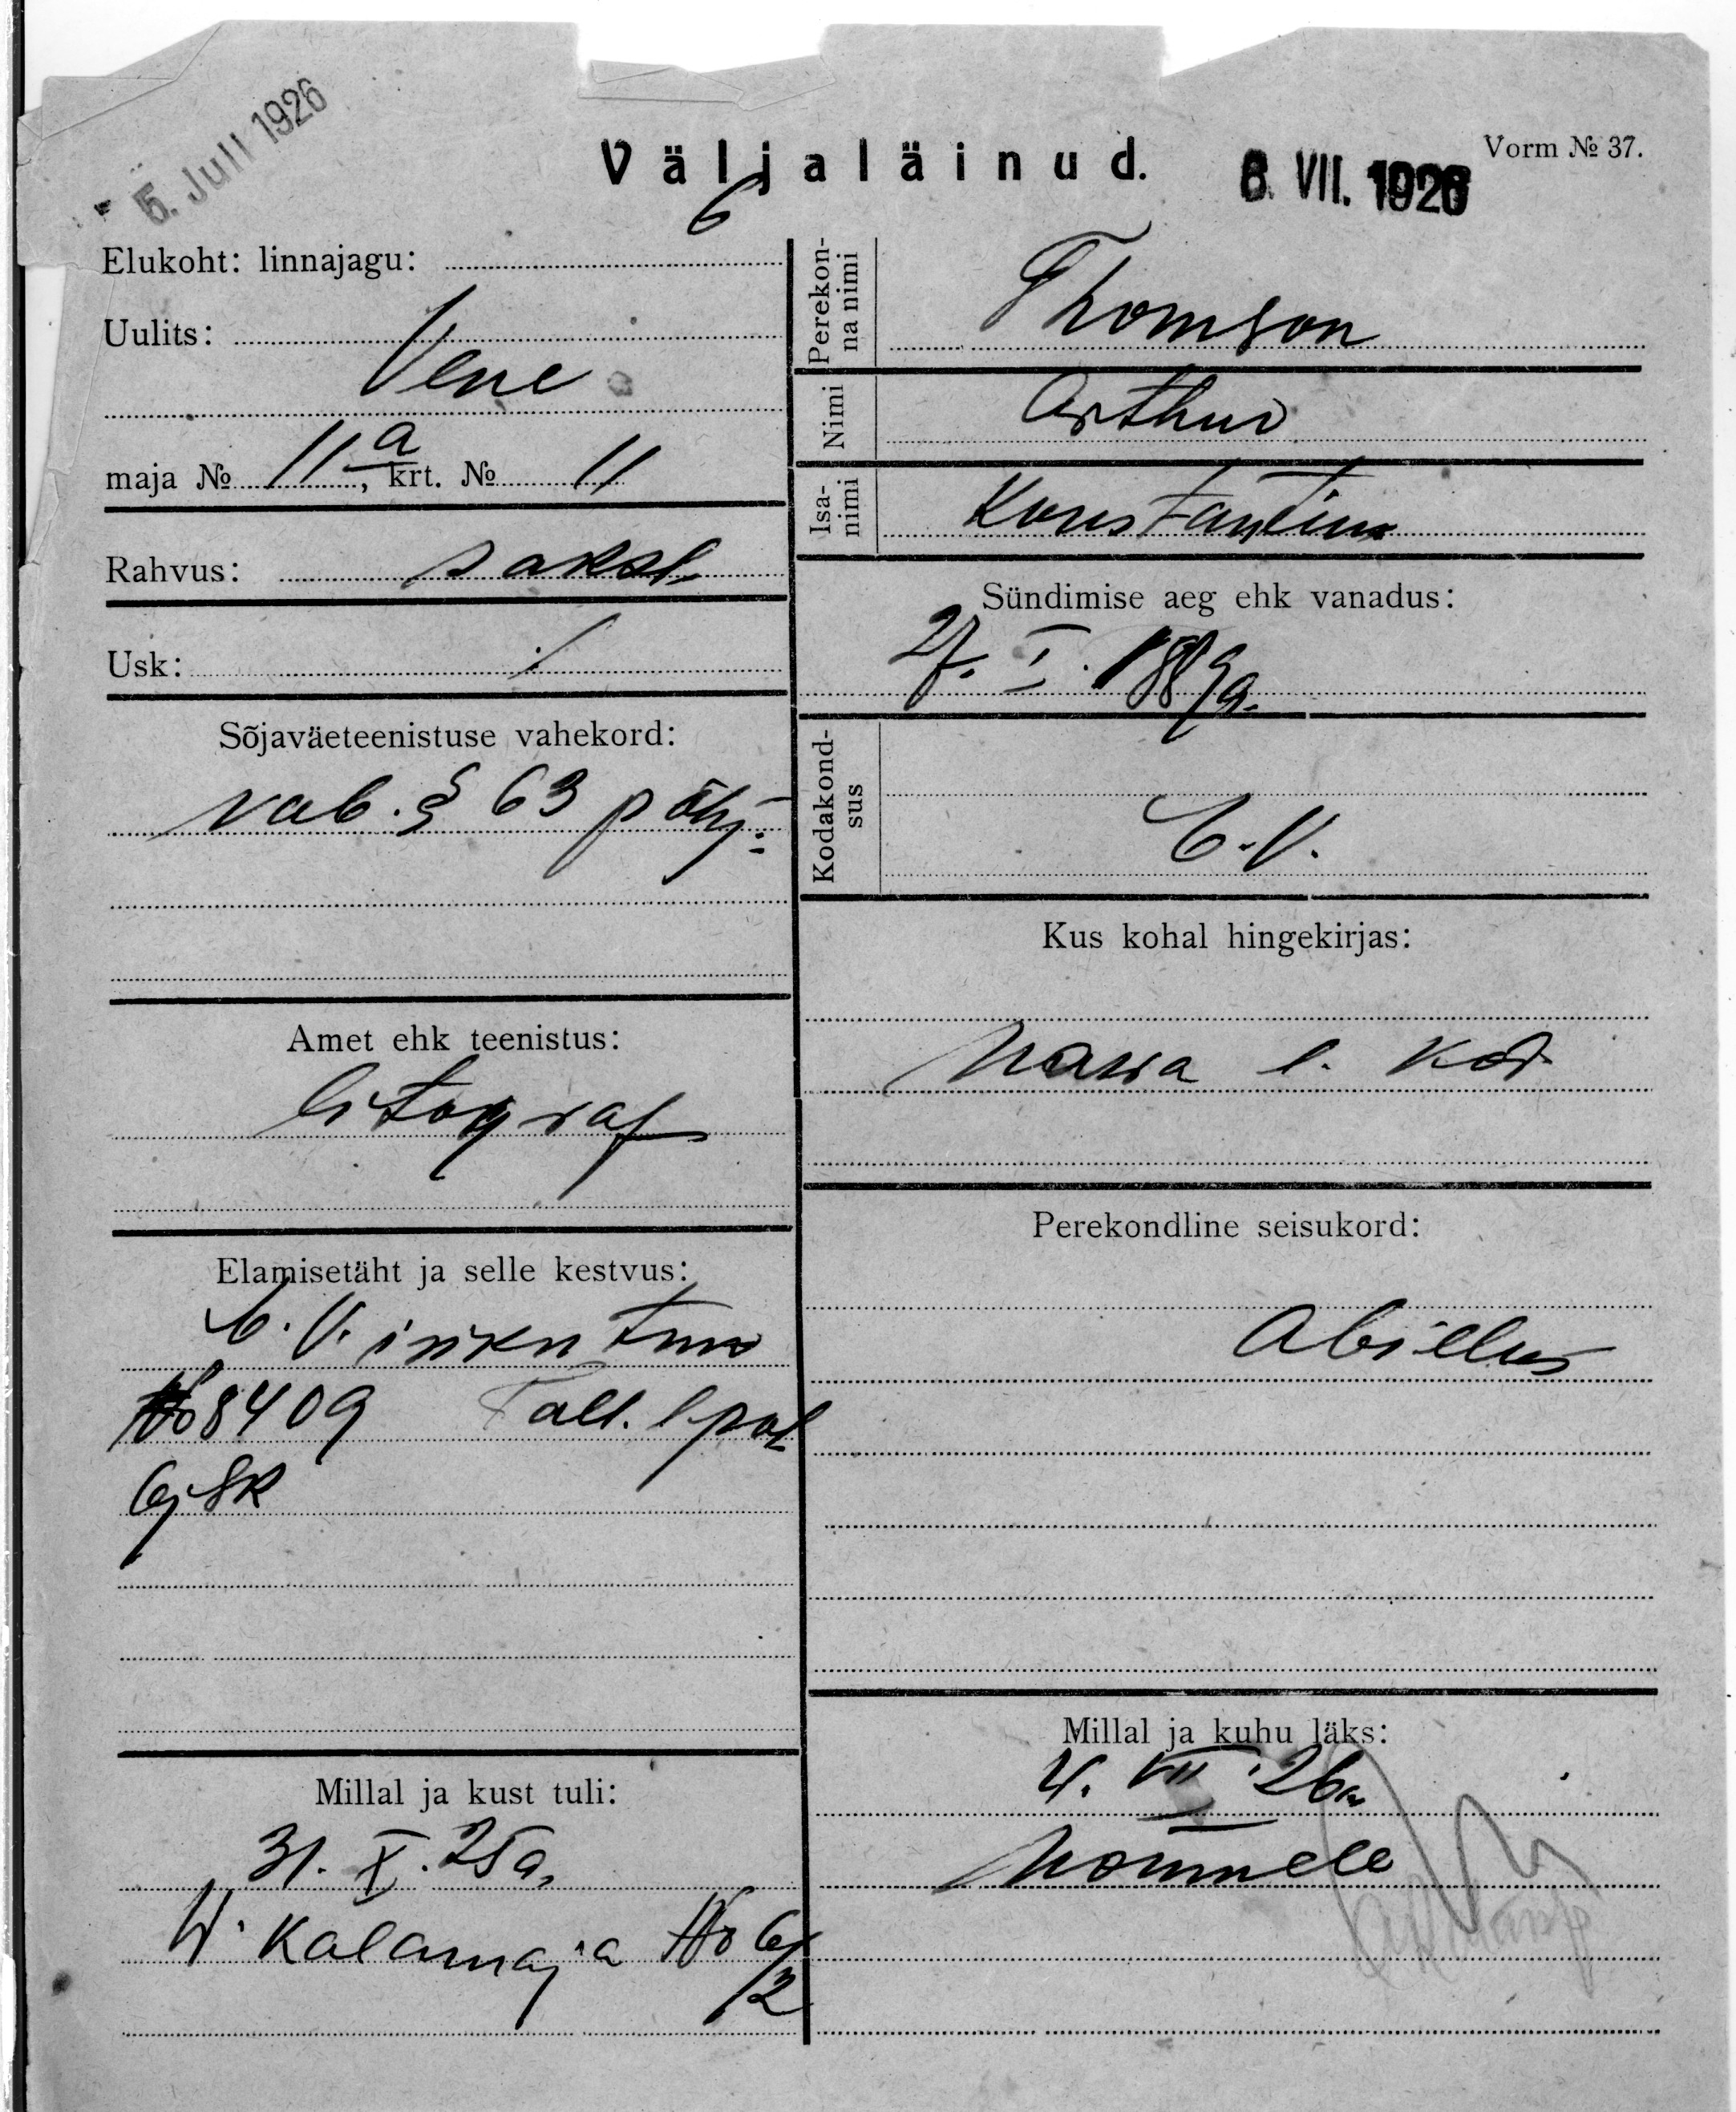 5. Juli 1926
Väljaläinud.
6. VII. 1926
Vorm № 37.
Elukoht: linnajagu: 6
Uulits:
Vene
maja № 11a, krt. № 11
Rahvus: saksl.
Usk: ./.
Sõjaväeteenistuse vahekord:
vab. § 63 põhj.
Amet ehk teenistus:
litograf
Elamisetäht ja selle kestvus:
E.V. isiku tun
No 8409 Tall. l. pol
6 j-sk
Millal ja kust tuli:
31. X. 25 a.
W. Kalamaja No 6/2
Perekonna nimi
Thomson
Nimi
Arthur
Isanimi
Konstantin
Sündimise aeg ehk vanadus:
27. I. 1889 a.
Kodakondsus
E.V.
Kus kohal hingekirjas:
Narva l. kod
Perekondline seisukord:
Abiellus
Millal ja kuhu läks:
4. VII. 26 a
Nõmmele